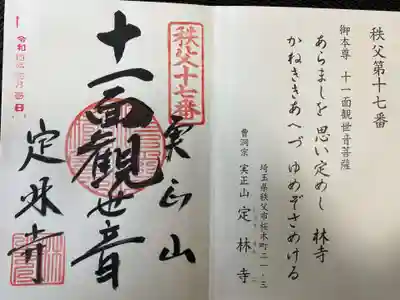 秩父第十七番
御本尊 十一面観世音菩薩
あらましを 思い定めし 林寺
かねききあへづ ゆめぞさめける
埼玉県秩父市桜木町二一・三
曹洞宗 実正山 定林寺
秩父十七番
実正山
十一面観世音
定林寺
令和